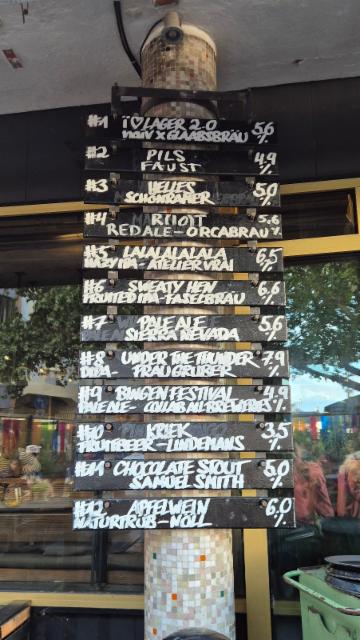 #1 I♡LAGER 2.0 5,6
NAIV X GLAABSBRÄU %
#2 PILS 4,9
FAUST %
#3 HELLES 5,0
SCHÖNRAMER %
#4 RIOIT 5,6
RED ALE - ORCABRÄU %
#5 LALALALALALA 6,5
ATELIER VRAI %
#6 SWEATY HEN 6,6
FRUITED IPA - FASELBRÄU %
#7 PALE ALE 5,6
SIERRA NEVADA %
#8 UNDER THE THUNDER 7,9
DIPA - FRAU GRUBER %
#9 BINGEN FESTIVAL 4,9
PALE ALE - COLLAB ALL BREWERIES %
#10 KRIEK 3,5
FRUITBEER - LINDEMANS %
#11 CHOCOLATE STOUT 5,0
SAMUEL SMITH %
#12 APFELWEIN 6,0
NATURTRÜB - NÖLL %